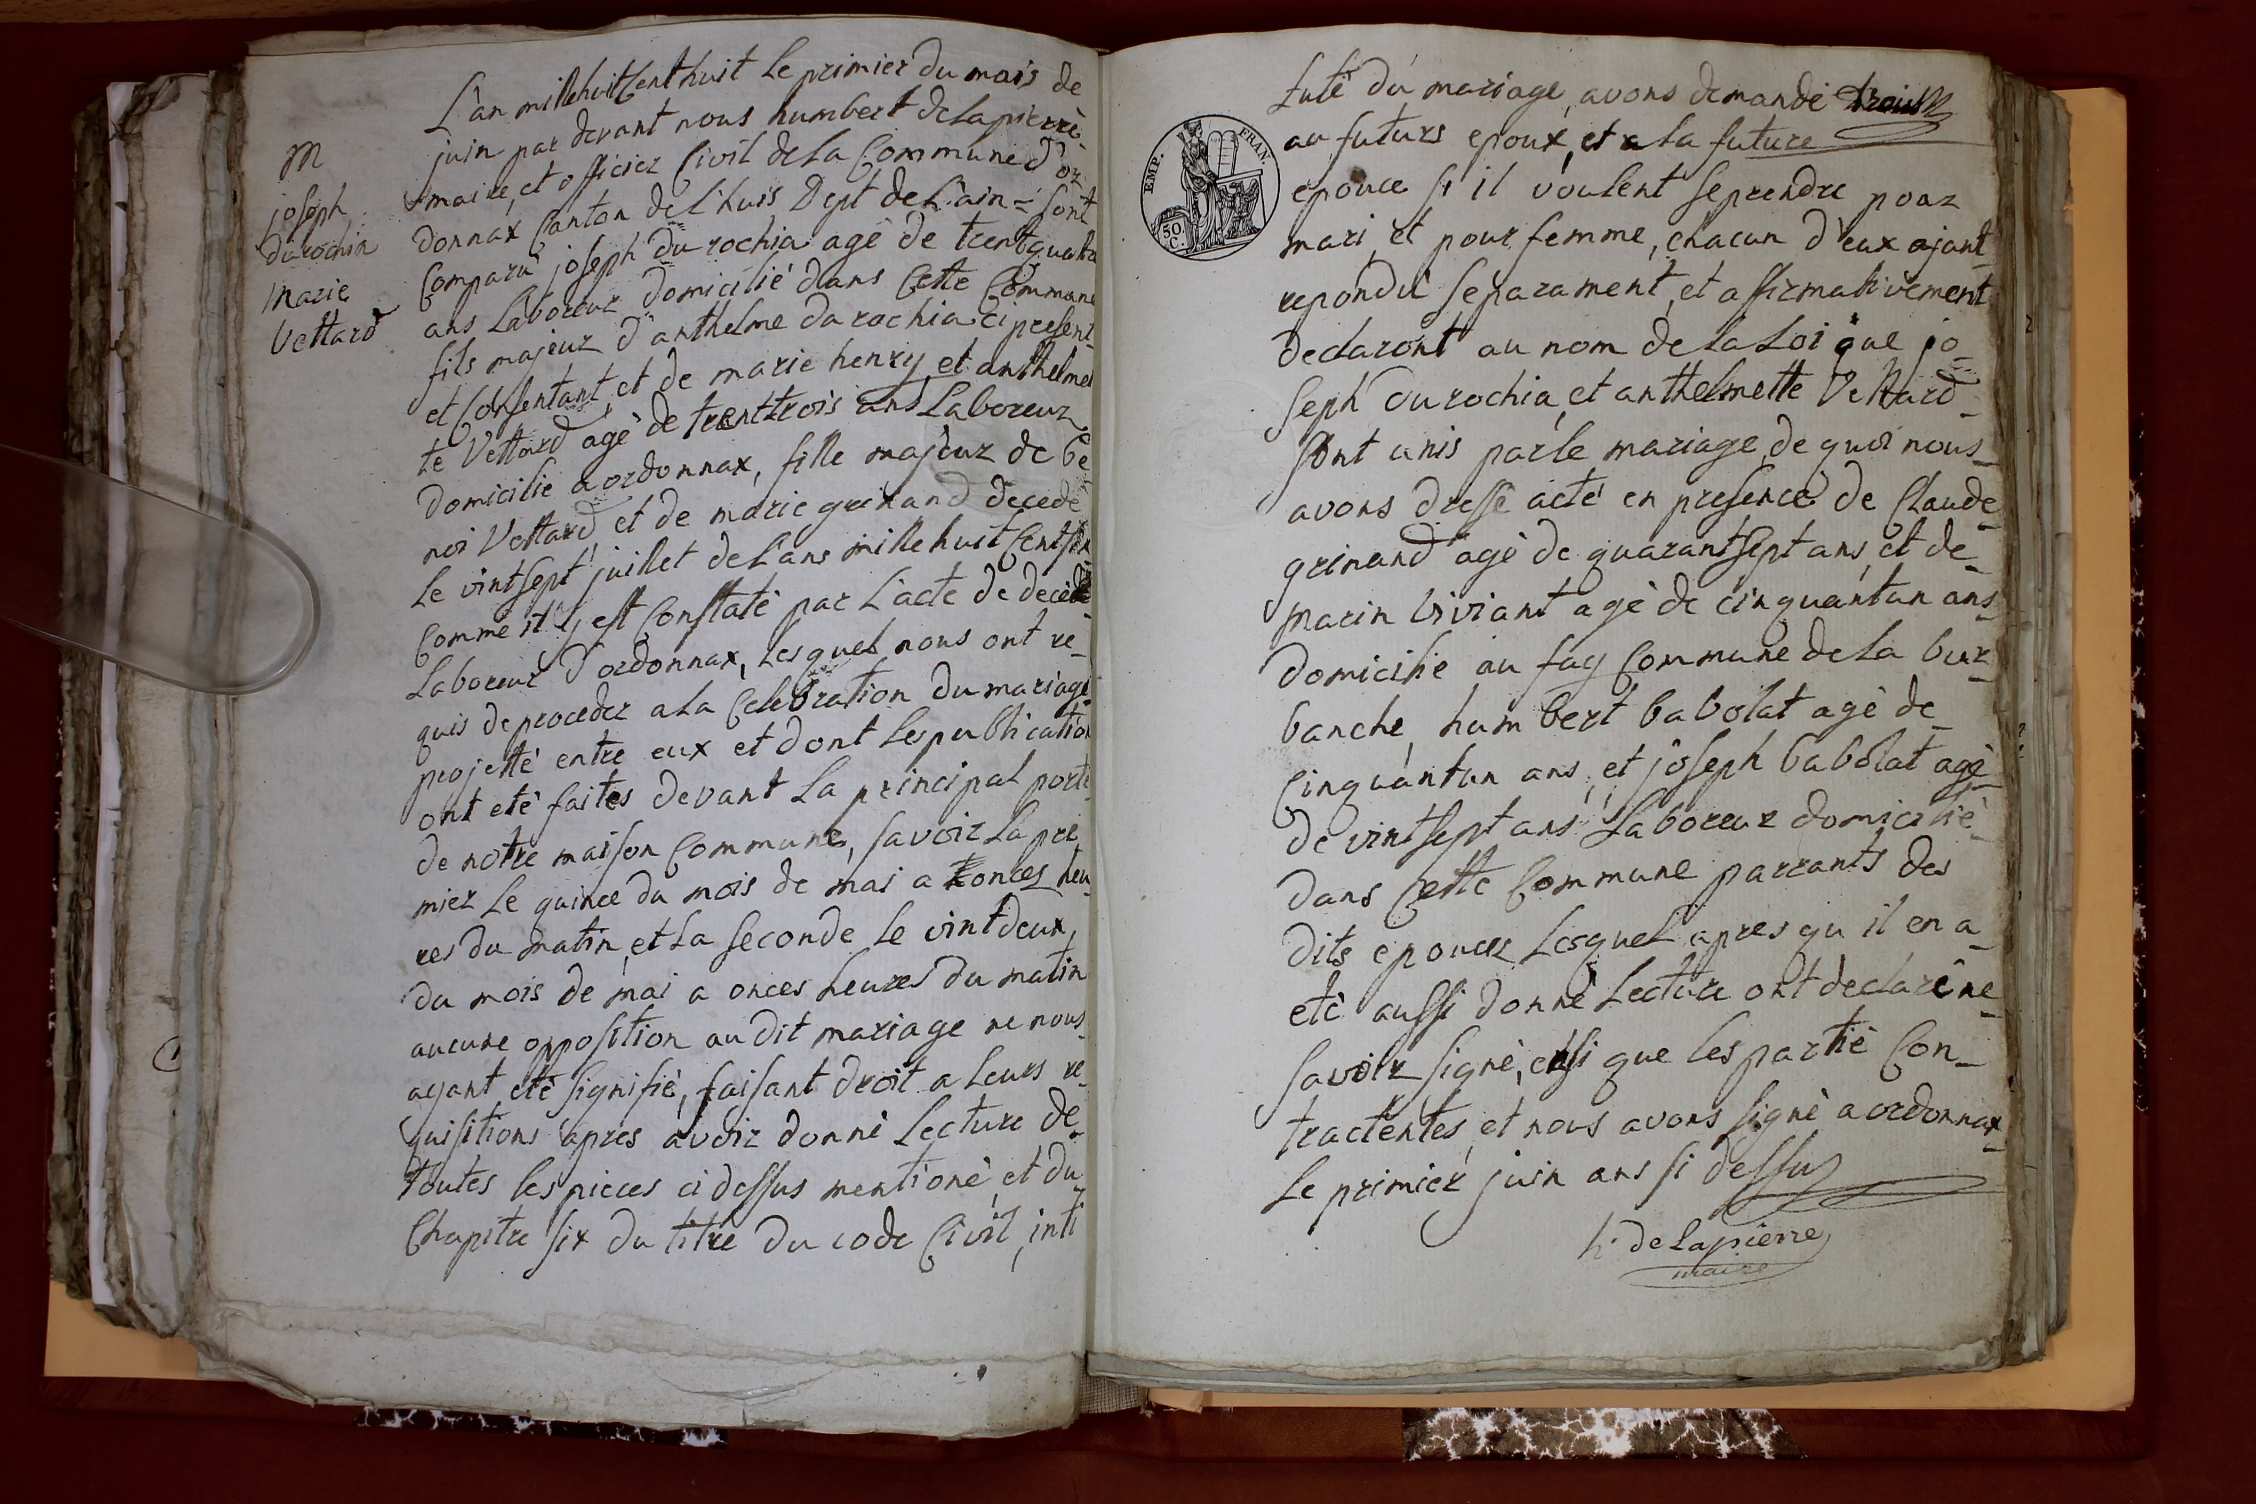 M
joseph
durochin
Marie
Vettard
L'an mille huit Cent huit le primier du mais de
juin par devant nous humbert de Lapierre
maire, et officier Civil de la Commune d'or
donnax Canton de L'huis Dept de L'ain = sont
Comparu joseph du rochia agé de trentquatre
ans Laboreur domicilié dans Cette Commune
fils majeur d'anthelme du rochia ci present
et Consentant, et de marie henry, et anthelme
te Vettard agé de trenttrois ans Laboreur
domicilie a ordonnax, fille majeur de be
noi Vettard et de marie grinand decedé
le vintsept juillet de L'ans mille huit Cent six
Comme it y est Constaté par L'acte de decede
Laboreur d'ordonnax, Lesquel nous ont re-
quis de proceder a la Celebration du mariage
projetté entre eux et dont les publication
ont eté faites devant La principal porte
de notre maison Commune, savoir La pre
mier le quince du mois de mai a onces heu
res du matin, et la seconde le vintdeux,
du mois de mai a onces heures du matin
aucune opposition au dit mariage ne nous
ayant eté signifié, faisant droit a leurs re-
quisitions apres avoir donné Lecture de
toutes les pieces ci dessus mentioné, et du
Chapitre six du titre du code Civil, inti
EMP. FRAN.
50 C.
tulé du mariage, avons demandé
au futurs epoux, et a la future
epouce si il voulent se prendre pour
mari, et pour femme, chacun d'eux ajant
repondu separament, et affirmativement
declaront au nom de la Loi que jo-
seph durochia, et anthelmette Vettard
sont unis par le mariage, de quoi nous
avons dressé acté en presence de Claude
grinand agé de quarantsept ans, et de
marin Viviant agé de cinquantun ans
domicilie au fay Commune de La bur-
banche, humbert babolat agé de
Cinquantun ans, et joseph babolat agé
de vintsept ans Laboreur domicilié
dans Cette Commune parrants des
dits epouez Lesquel apres qu il en a
eté aussi donné Lecture ont declaré ne
savoir signé, ensi que les partié Con-
tractentes, et nous avons signé a ordonnax
Le primier juin ans si dessus
h. de Lapierre
maire